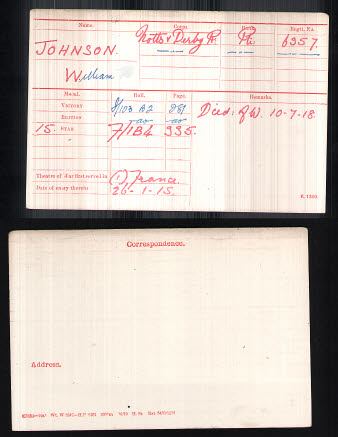 Name. Corps. Rank. Regtl. No.
JOHNSON. Notts & Derby R. Pte. 6957.
William
Medal. Roll. Page. Remarks.
VICTORY 8/103 B2 881 Died: of W. 10-7-18
BRITISH -do- -do-
15. STAR 7/1B4 335.
Theatre of War first served in (1) France.
Date of entry therein 26-1-15.
K. 1380.
Correspondence.
Address.